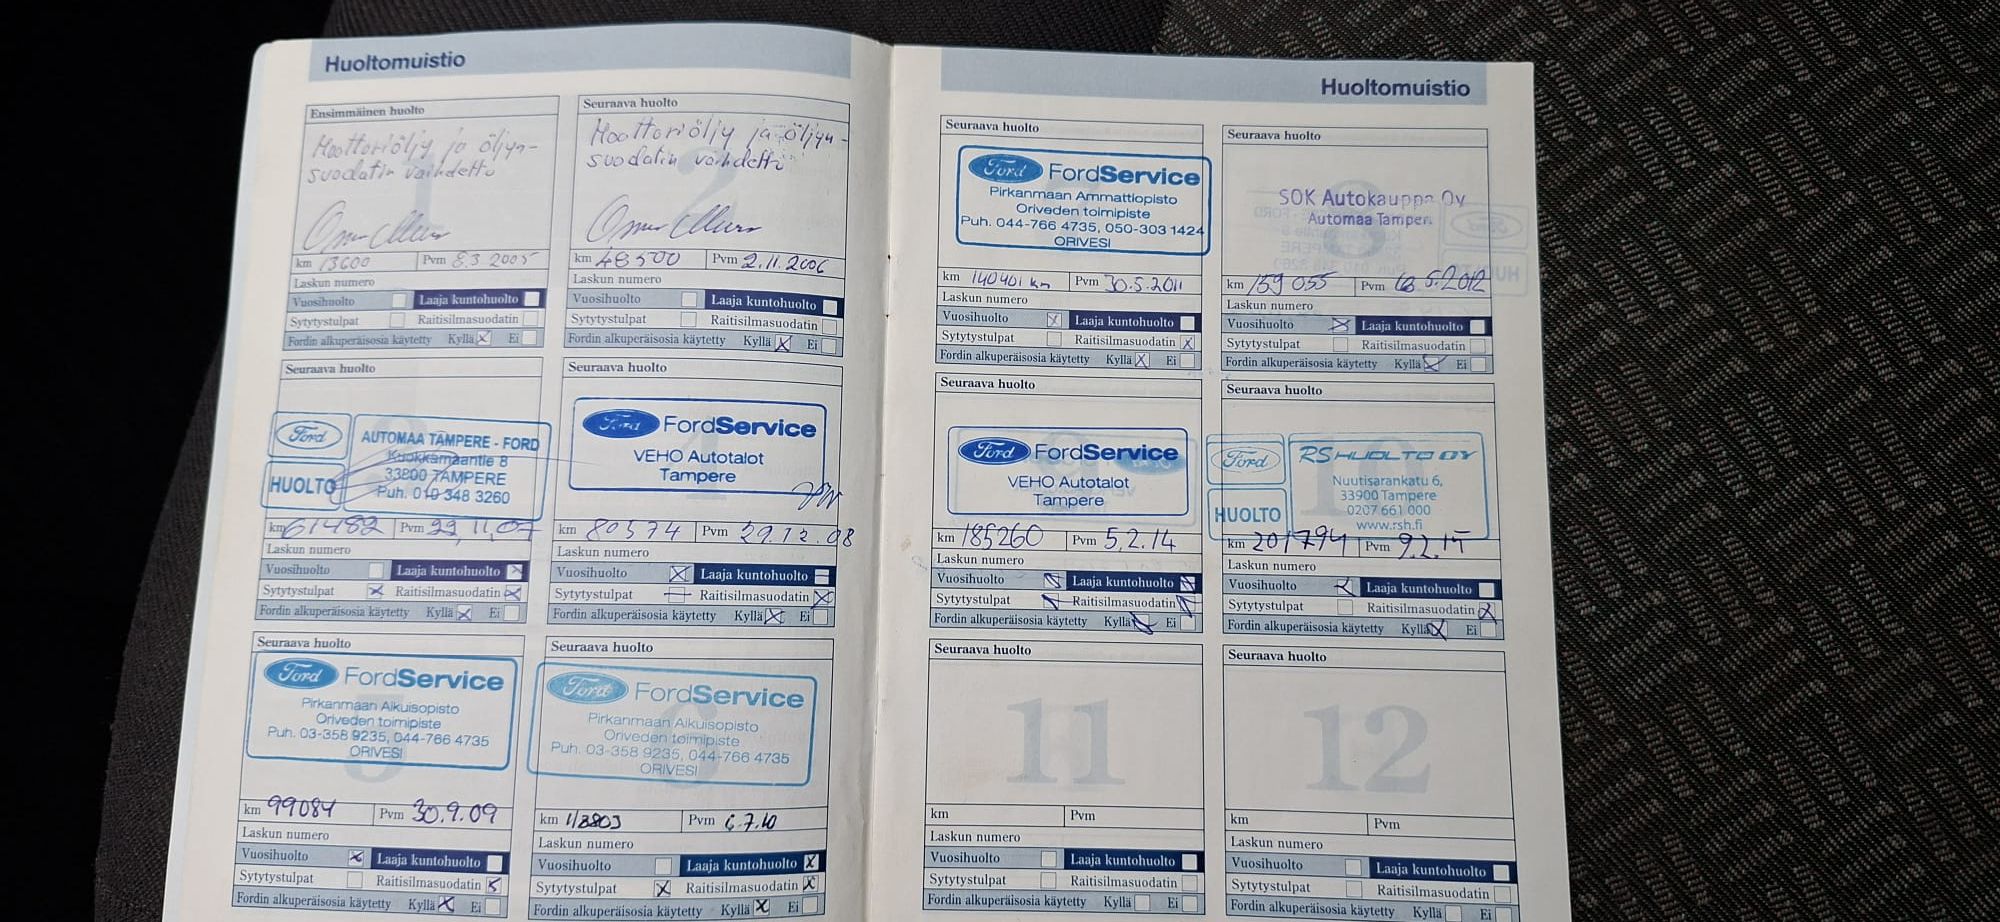 Huoltomuistio
Ensimmäinen huolto
Moottoriöljy ja öljyn-
suodatin vaihdettu
km 13600 Pvm 8.3 2005
Laskun numero
Vuosihuolto Laaja kuntohuolto
Sytytystulpat Raitisilmasuodatin
Fordin alkuperäisosia käytetty Kyllä Ei
Seuraava huolto
Moottoriöljy ja öljyn-
suodatin vaihdettu
2
km 48500 Pvm 2.11.2006
Laskun numero
Vuosihuolto Laaja kuntohuolto
Sytytystulpat Raitisilmasuodatin
Fordin alkuperäisosia käytetty Kyllä Ei
Seuraava huolto
Ford
HUOLTO
AUTOMAA TAMPERE - FORD
Kuokkamaantie 8
33800 TAMPERE
Puh. 010 348 3260
km 61482 Pvm 22.11.07
Laskun numero
Vuosihuolto Laaja kuntohuolto
Sytytystulpat Raitisilmasuodatin
Fordin alkuperäisosia käytetty Kyllä Ei
Seuraava huolto
Ford FordService
VEHO Autotalot
Tampere
4
km 80574 Pvm 29.12.08
Laskun numero
Vuosihuolto Laaja kuntohuolto
Sytytystulpat Raitisilmasuodatin
Fordin alkuperäisosia käytetty Kyllä Ei
Seuraava huolto
Ford FordService
Pirkanmaan Aikuisopisto
Oriveden toimipiste
Puh. 03-358 9235, 044-766 4735
ORIVESI
5
km 99084 Pvm 30.9.09
Laskun numero
Vuosihuolto Laaja kuntohuolto
Sytytystulpat Raitisilmasuodatin
Fordin alkuperäisosia käytetty Kyllä Ei
Seuraava huolto
Ford FordService
Pirkanmaan Aikuisopisto
Oriveden toimipiste
Puh. 03-358 9235, 044-766 4735
ORIVESI
6
km Pvm 6.7.10
Laskun numero
Vuosihuolto Laaja kuntohuolto
Sytytystulpat Raitisilmasuodatin
Fordin alkuperäisosia käytetty Kyllä Ei
Huoltomuistio
Seuraava huolto
Ford FordService
Pirkanmaan Ammattiopisto
Oriveden toimipiste
Puh. 044-766 4735, 050-303 1424
ORIVESI
km 140401 km Pvm 30.5.2011
Laskun numero
Vuosihuolto Laaja kuntohuolto
Sytytystulpat Raitisilmasuodatin
Fordin alkuperäisosia käytetty Kyllä Ei
Seuraava huolto
SOK Autokauppa Oy
Automaa Tampere
8
km 159 055 Pvm
Laskun numero
Vuosihuolto Laaja kuntohuolto
Sytytystulpat Raitisilmasuodatin
Fordin alkuperäisosia käytetty Kyllä Ei
Seuraava huolto
Ford FordService
VEHO Autotalot
Tampere
km 185260 Pvm 5.2.14
Laskun numero
Vuosihuolto Laaja kuntohuolto
Sytytystulpat Raitisilmasuodatin
Fordin alkuperäisosia käytetty Kyllä Ei
Seuraava huolto
Ford
HUOLTO
RS HUOLTO OY
Nuutisarankatu 6,
33900 Tampere
0207 661 000
www.rsh.fi
10
km 201794 Pvm
Laskun numero
Vuosihuolto Laaja kuntohuolto
Sytytystulpat Raitisilmasuodatin
Fordin alkuperäisosia käytetty Kyllä Ei
Seuraava huolto
11
km Pvm
Laskun numero
Vuosihuolto Laaja kuntohuolto
Sytytystulpat Raitisilmasuodatin
Fordin alkuperäisosia käytetty Kyllä Ei
Seuraava huolto
12
km Pvm
Laskun numero
Vuosihuolto Laaja kuntohuolto
Sytytystulpat Raitisilmasuodatin
Fordin alkuperäisosia käytetty Kyllä Ei